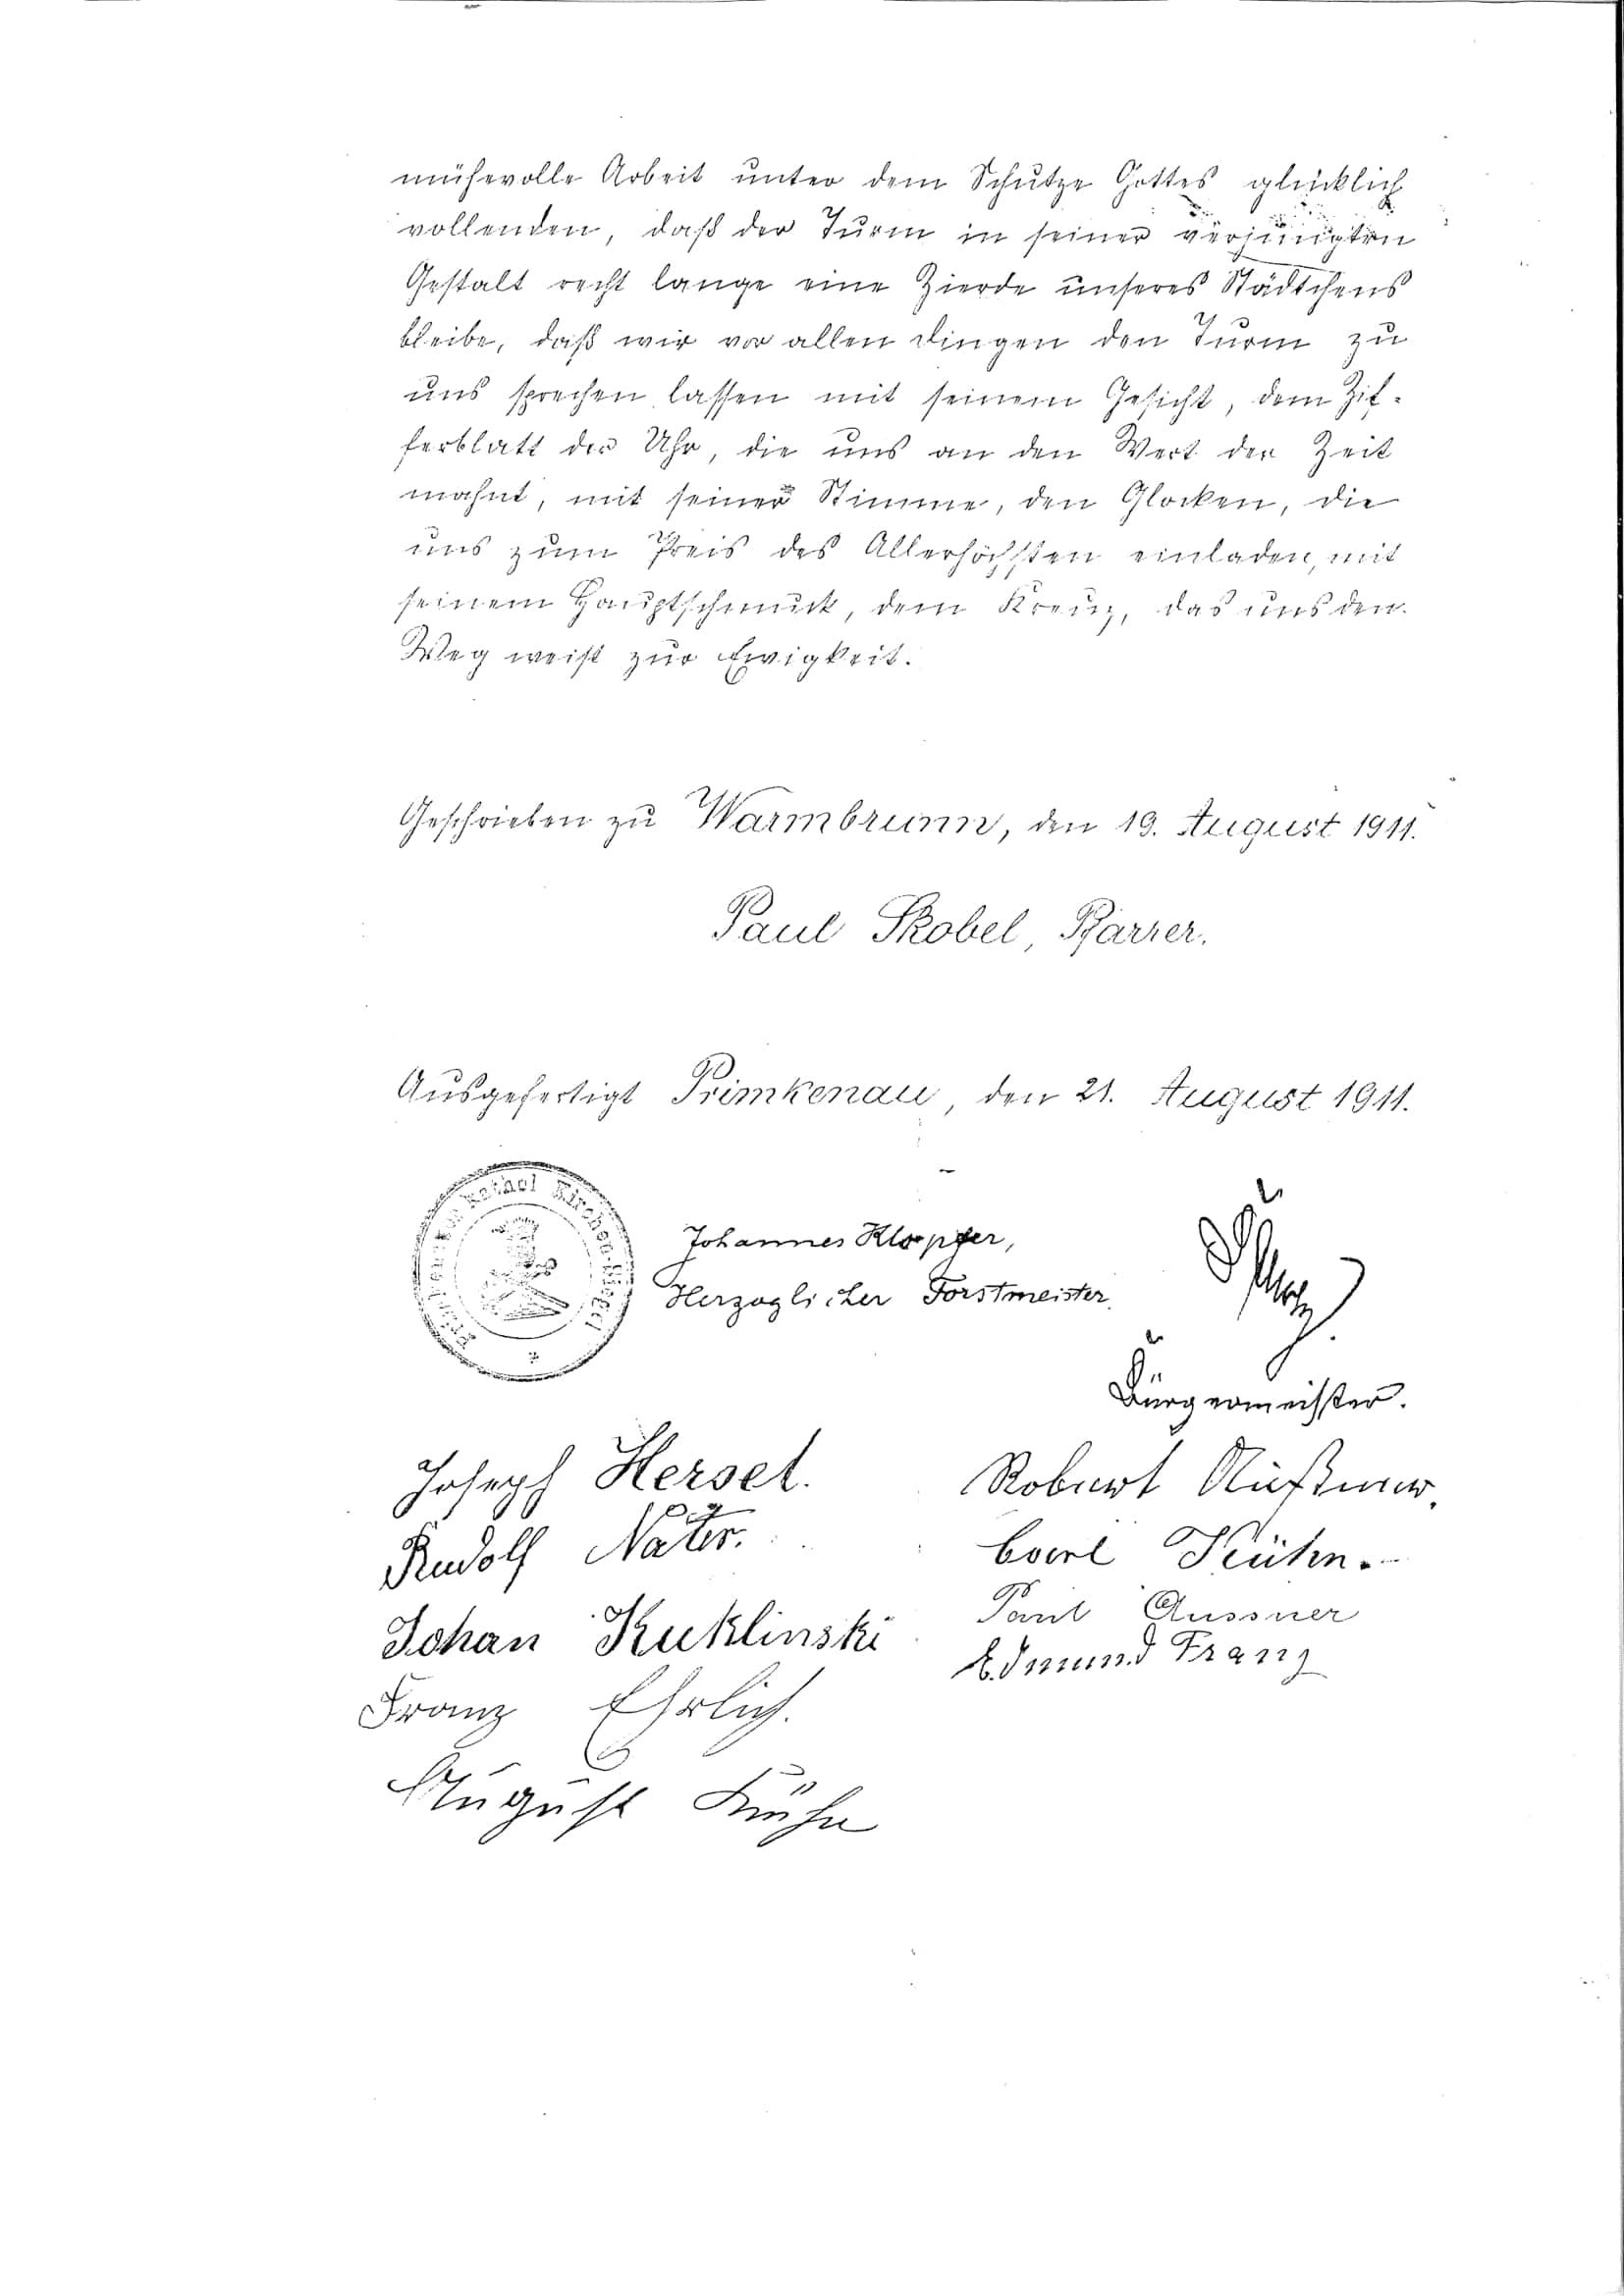 mühevolle Arbeit unter dem Schutze Gottes glücklich
vollenden, daß der Turm in seiner verjüngten
Gestalt recht lange eine Zierde unseres Städtchens
bleibe, daß wir vor allen Dingen den Turm zu
uns sprechen lassen mit seinem Gesicht, dem Zif-
ferblatt der Uhr, die uns an den Wert der Zeit
mahnt, mit seiner Stimme, den Glocken, die
uns zum Preis des Allerhöchsten einladen, mit
seinem Hauptschmuck, dem Kreuz, das uns den
Weg weist zur Ewigkeit.
Geschrieben zu Warmbrunn, den 19. August 1911.
Paul Skobel, Pfarrer.
Ausgefertigt Primkenau, den 21. August 1911.
Kathol Kirchen-Siegel
Johannes Klopfer,
Herzoglicher Forstmeister.
Bürgermeister.
Joseph Hersel.
Robert
Rudolf Näter.
Carl Kühn.
Johan Kuklinski
Paul Aussner
Edmund Franz
Franz Ehrlich.
August Kühn